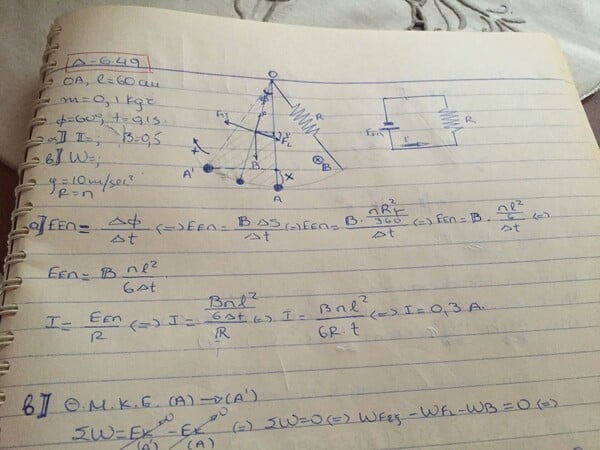 Δ-6.49
OA, l=60cm
m=0,1kgr
φ=60°, t=0,1s
α) I=;, B=0,5
β) W=;
g=10m/sec²
R=π
O
R
Fεξ
FL
B
⊗B
A'
A
x
Eεπ
R
I
α) Eεπ= Δφ/Δt (=) Eεπ= BΔS/Δt (=) Eεπ= B·(πR²φ/360)/Δt (=) Eεπ= B·(πl²/6)/Δt (=)
Eεπ= B πl²/6Δt
I= Eεπ/R (=) I= (Bπl²/6Δt)/R (=) I= Bπl²/6R·t (=) I=0,3A.
β) Θ.Μ.Κ.Ε. (A)→(A')
ΣW=Eκ(A')⁰-Eκ(A)⁰ (=) ΣW=0 (=) WFεξ-WFL-WB=0 (=)